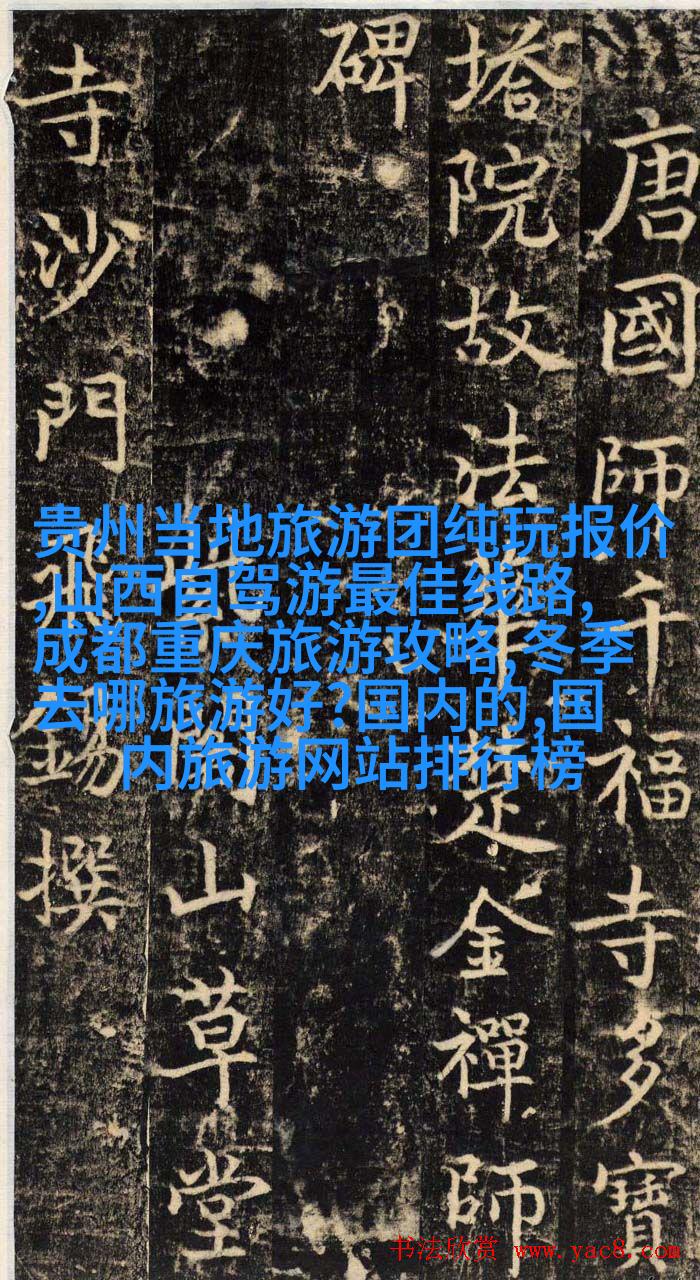 唐國師千福寺多寶
塔院故法華楚金禪師
碑
紫閣山草堂
寺沙門飛錫撰
贵州当地旅游团纯玩报价
,山西自驾游最佳线路,
成都重庆旅游攻略,冬季
去哪旅游好?国内的,国
内旅游网站排行榜
书法欣赏 www.yac8.com